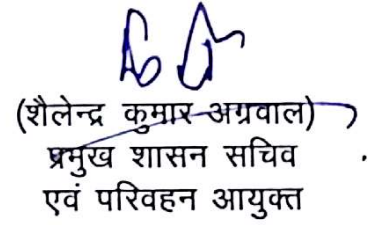 (शैलेन्द्र कुमार अग्रवाल)
प्रमुख शासन सचिव
एवं परिवहन आयुक्त